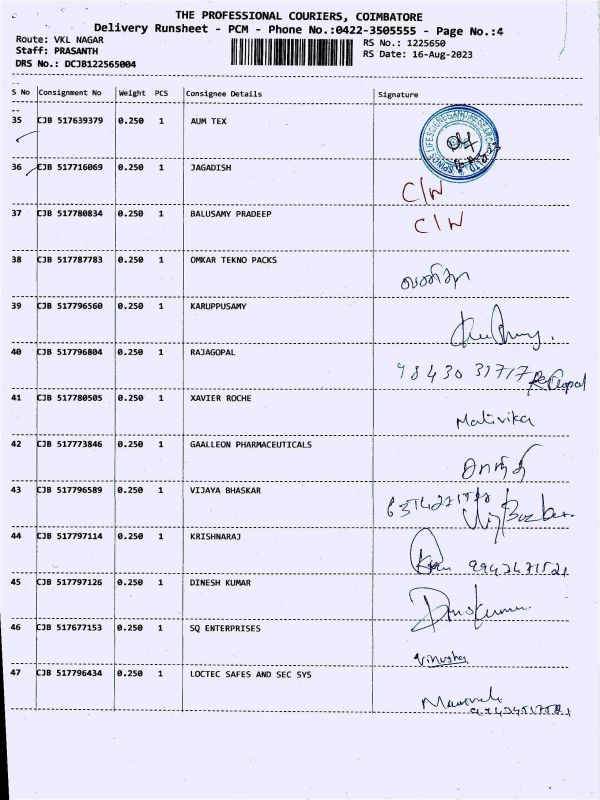 THE PROFESSIONAL COURIERS, COIMBATORE
Delivery Runsheet - PCM - Phone No.:0422-3505555 - Page No.:4
Route: VKL NAGAR
RS No.: 1225650
Staff: PRASANTH
RS Date: 16-Aug-2023
DRS No.: DCJB122565004
S No Consignment No Weight PCS Consignee Details Signature
35 CJB 517639379 0.250 1 AUM TEX
36 CJB 517716069 0.250 1 JAGADISH C/W
37 CJB 517780834 0.250 1 BALUSAMY PRADEEP C/W
38 CJB 517787783 0.250 1 OMKAR TEKNO PACKS
39 CJB 517796560 0.250 1 KARUPPUSAMY
40 CJB 517796804 0.250 1 RAJAGOPAL 98430 31717
41 CJB 517780505 0.250 1 XAVIER ROCHE Malivika
42 CJB 517773846 0.250 1 GAALLEON PHARMACEUTICALS
43 CJB 517796589 0.250 1 VIJAYA BHASKAR
44 CJB 517797114 0.250 1 KRISHNARAJ
45 CJB 517797126 0.250 1 DINESH KUMAR
46 CJB 517677153 0.250 1 SQ ENTERPRISES
47 CJB 517796434 0.250 1 LOCTEC SAFES AND SEC SYS